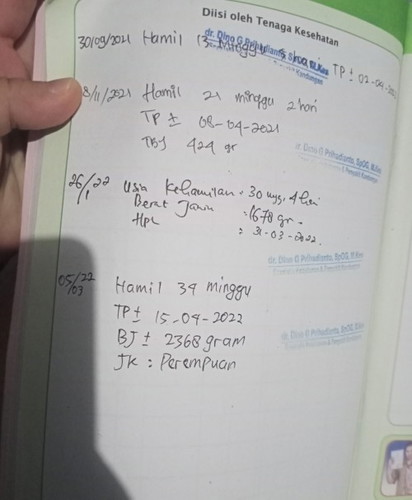 Diisi oleh Tenaga Kesehatan
30/09/2021 Hamil 13 minggu TP ± 02-04-202
dr. Dino G Prihadianto, SpOG, M.Kes
8/11/2021 Hamil 21 minggu 2 hari
TP ± 08-04-2021
TBJ 424 gr
dr. Dino G Prihadianto, SpOG, M.Kes
26/1/22 Usia Kehamilan = 30 mgg, 4 hari
Berat Janin = 1678 gr -
Hpl : 31-03-2022.
dr. Dino G Prihadianto, SpOG, M.Kes
05/03/22 Hamil 34 minggu
TP ± 15-04-2022
BJ ± 2368 gram
dr. Dino G Prihadianto, SpOG, M.Kes
JK : Perempuan